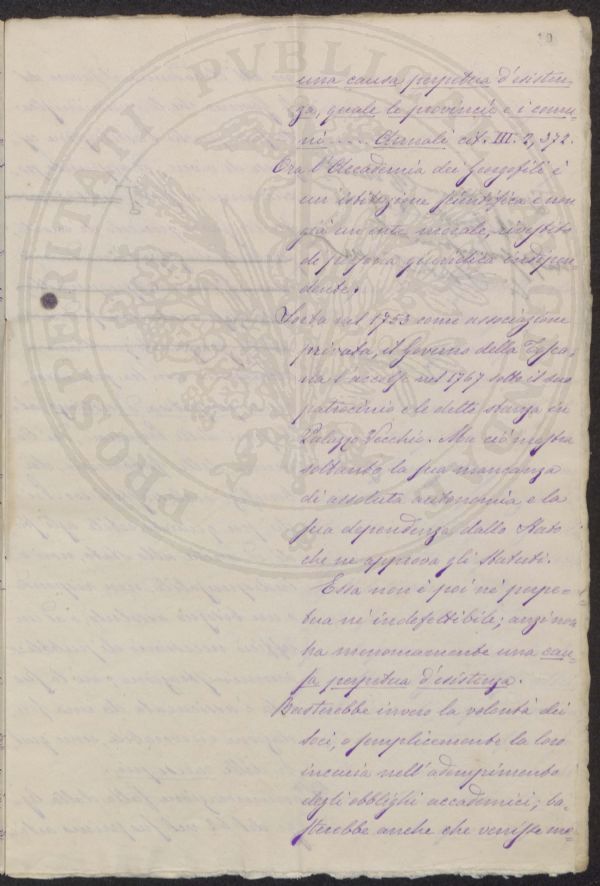 una causa perpetua d'esisten-
za, quale le provincie e i comu-
ni ..... Annali cit. III. 2, 372.
Ora l'Accademia dei Georgofili è
un istituzione scientifica e non
già un ente morale, rivestito
di persona giuridica indipen-
dente.
Sorta nel 1753 come associazione
privata, il Governo della Tosca-
na l'accolse nel 1767 sotto il suo
patrocinio e le dette stanza in
Palazzo Vecchio. Ma ciò mostra
soltanto la sua mancanza
di assoluta autonomia e la
sua dependenza dallo Stato
che ne approva gli Statuti.
Essa non è poi nè perpe-
tua nè indefettibile; anzi non
ha menomamente una cau-
sa perpetua d'esistenza.
Basterebbe invero la volontà dei
soci, o semplicemente la loro
incuria nell'adempimento
degli obblighi accademici; ba-
sterebbe anche che venisse me-
PROSPERITATI PVBLICAE